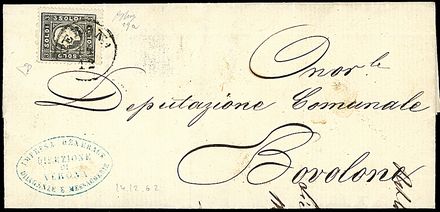 3 SOLDI
Onor.le
Deputazione Comunale
Bovolone
IMPRESA GENERALE
DIREZIONE
DI
VERONA
DILIGENZE E MESSAGGERIE
14.12.62